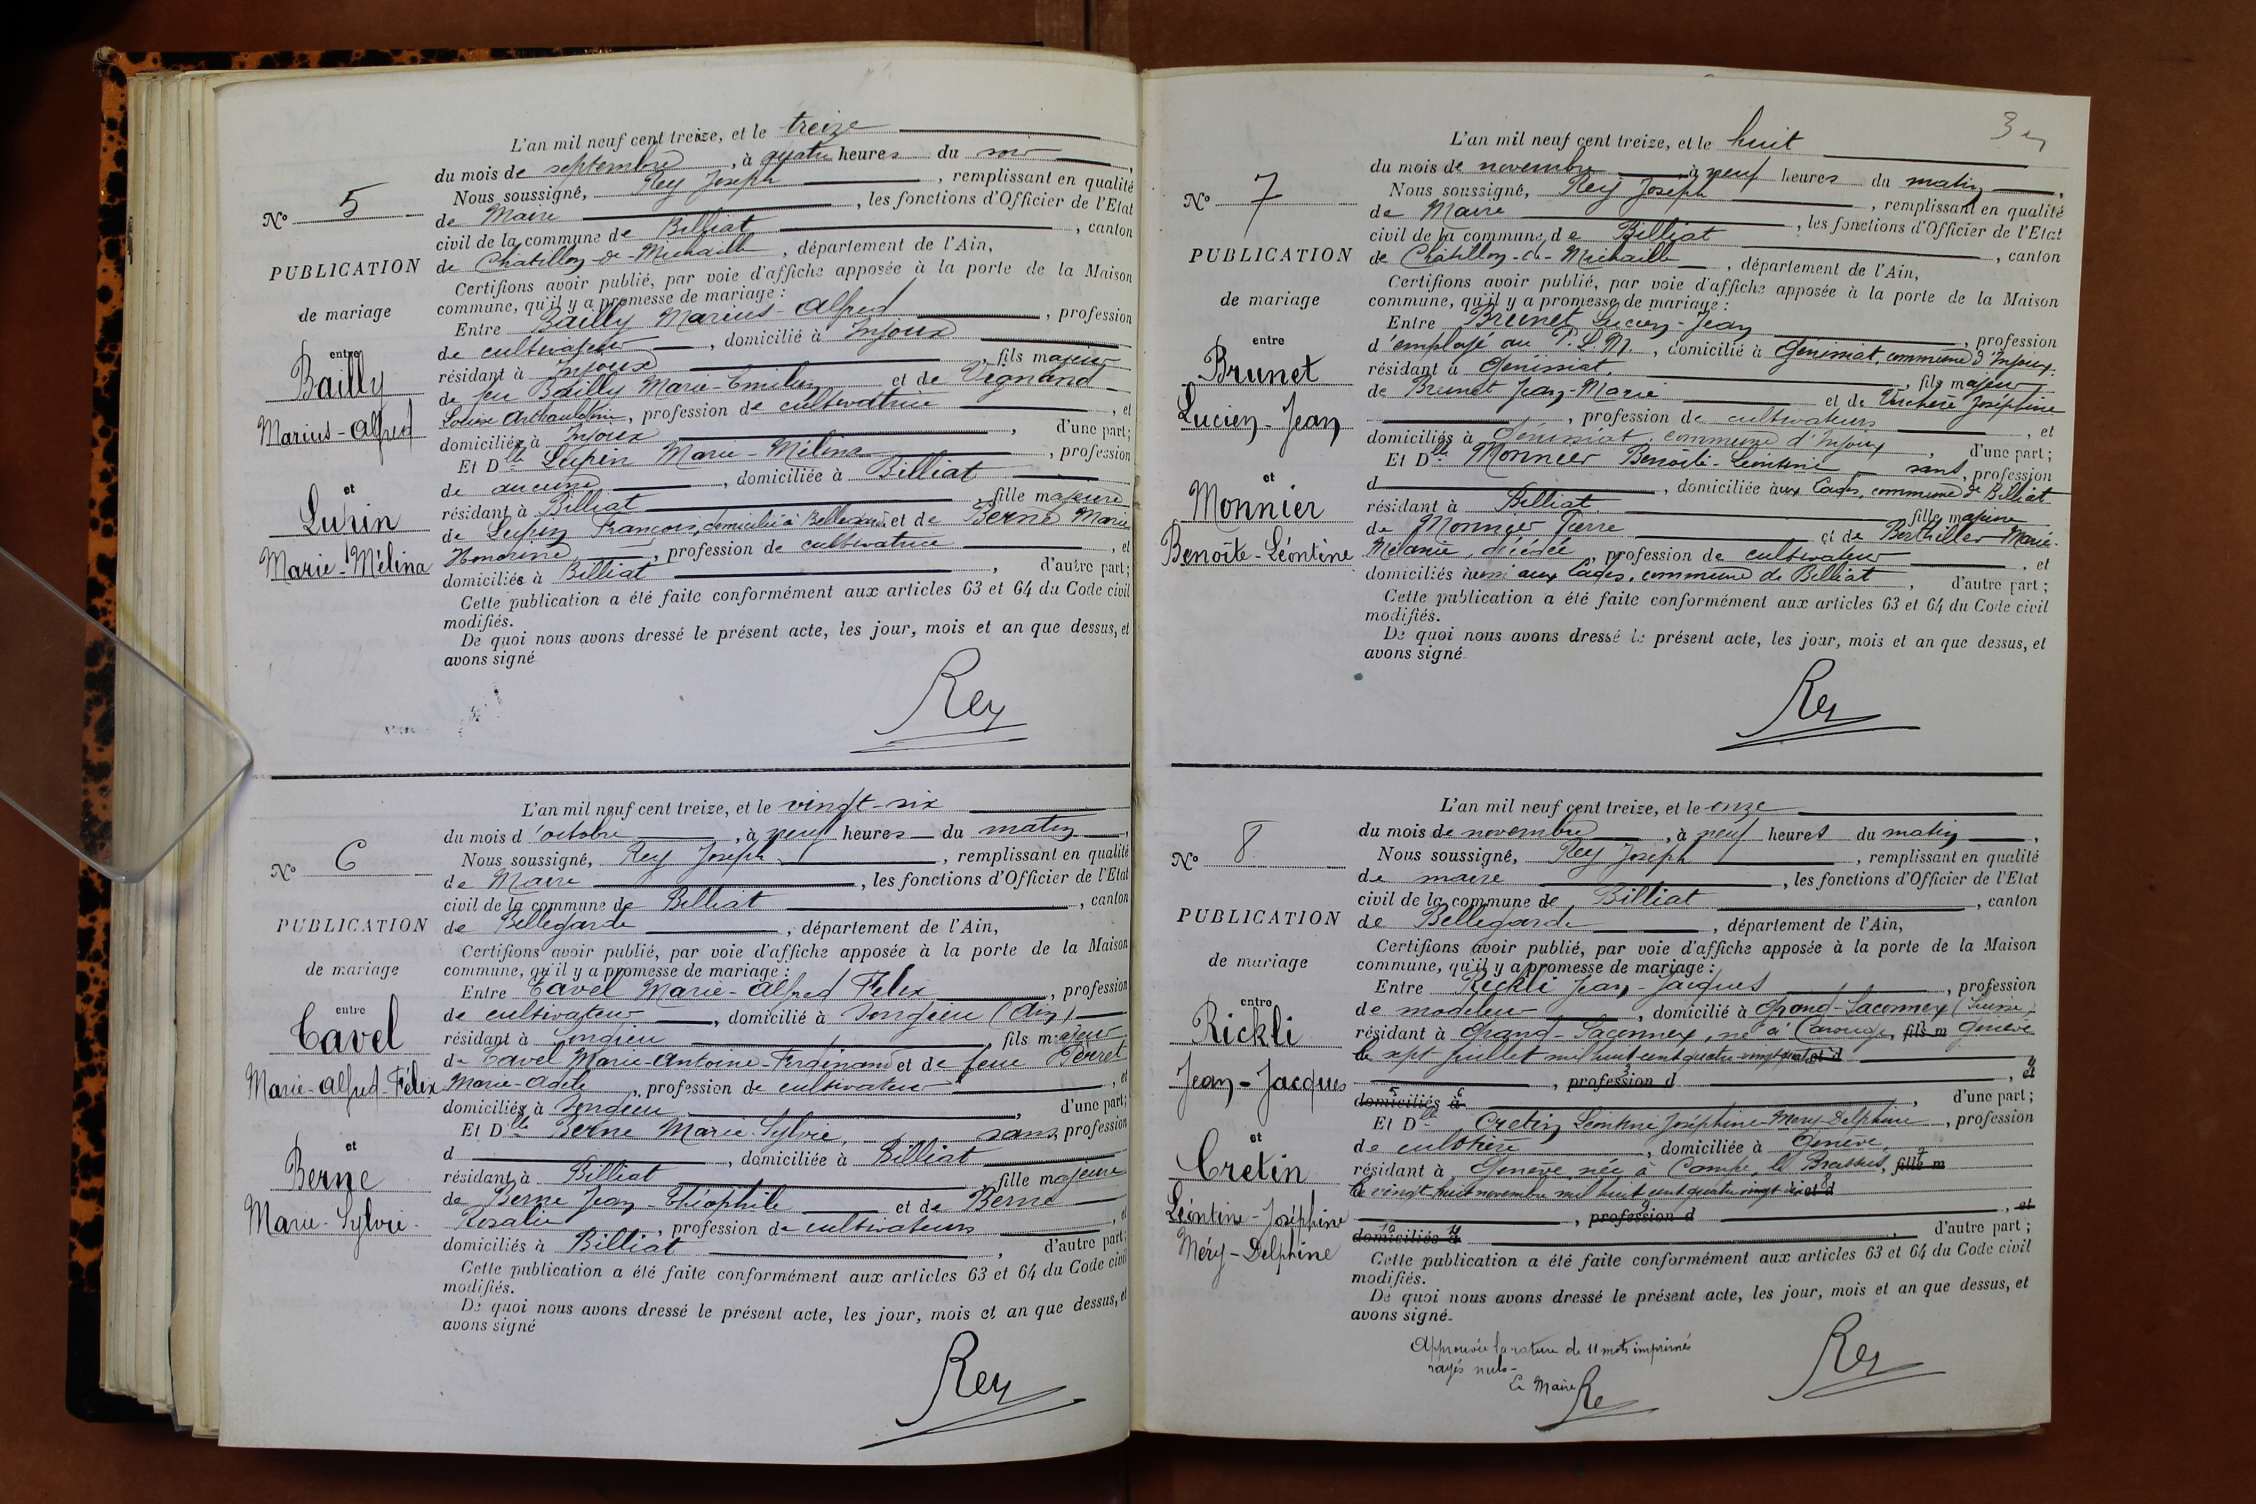 L'an mil neuf cent treize, et le treize
du mois de septembre, à quatre heures du soir,
Nous soussigné, Rey Joseph, remplissant en qualité
de Maire, les fonctions d'Officier de l'Etat
civil de la commune de Billiat, canton
de Châtillon-de-Michaille, département de l'Ain,
Certifions avoir publié, par voie d'affiche apposée à la porte de la Maison
commune, qu'il y a promesse de mariage :
Entre Bailly Marius-Alfred, profession
de cultivateur, domicilié à Injoux
résidant à Injoux, fils majeur
de feu Bailly Marie-Emilien et de Vignand
Louise, profession de cultivatrice, et
domiciliés à Injoux, d'une part;
Et Dlle Lupin Marie-Mélina, profession
de aucune, domiciliée à Billiat
résidant à Billiat, fille majeure
de Lupin François, domicilié à Bellegarde et de Berne Marie
Honorine, profession de cultivatrice, et
domiciliés à Billiat, d'autre part;
Cette publication a été faite conformément aux articles 63 et 64 du Code civil
modifiés.
De quoi nous avons dressé le présent acte, les jour, mois et an que dessus, et
avons signé
Rey
No 5
PUBLICATION
de mariage
entre
Bailly
Marius-Alfred
et
Lupin
Marie-Mélina
L'an mil neuf cent treize, et le vingt-six
du mois d'octobre, à neuf heures du matin,
Nous soussigné, Rey Joseph, remplissant en qualité
de Maire, les fonctions d'Officier de l'Etat
civil de la commune de Billiat, canton
de Bellegarde, département de l'Ain,
Certifions avoir publié, par voie d'affiche apposée à la porte de la Maison
commune, qu'il y a promesse de mariage :
Entre Tavel Marie-Alfred Félix, profession
de cultivateur, domicilié à Songieu (Ain)
résidant à Songieu, fils majeur
de Tavel Marie-Antoine-Ferdinand et de feue Perret
Marie-Adèle, profession de cultivateur, et
domiciliés à Songieu, d'une part;
Et Dlle Berne Marie-Sylvie, sans, profession
d, domiciliée à Billiat
résidant à Billiat, fille majeure
de Berne Jean-Théophile et de Berne
Rosalie, profession de cultivateurs, et
domiciliés à Billiat, d'autre part;
Cette publication a été faite conformément aux articles 63 et 64 du Code civil
modifiés.
De quoi nous avons dressé le présent acte, les jour, mois et an que dessus, et
avons signé
Rey
No 6
PUBLICATION
de mariage
entre
Tavel
Marie-Alfred-Félix
et
Berne
Marie-Sylvie
L'an mil neuf cent treize, et le huit
du mois de novembre, à neuf heures du matin,
Nous soussigné, Rey Joseph, remplissant en qualité
de Maire, les fonctions d'Officier de l'Etat
civil de la commune de Billiat, canton
de Châtillon-de-Michaille, département de l'Ain,
Certifions avoir publié, par voie d'affiche apposée à la porte de la Maison
commune, qu'il y a promesse de mariage :
Entre Brunet Lucien-Jean, profession
d'employé au P.L.M., domicilié à Génissiat, commune d'Injoux.
résidant à Génissiat, fils majeur
de Brunet Jean-Marie et de Joséphine
, profession de cultivateurs, et
domiciliés à Génissiat commune d'Injoux, d'une part;
Et Dlle Monnier Benoîte-Léontine sans, profession
d, domiciliée aux Cages, commune de Billiat
résidant à Billiat, fille majeure
de Monnier Pierre et de Berthillier Marie-
Mélanie, décédée, profession de cultivateur, et
domiciliés aussi aux Cages, commune de Billiat, d'autre part;
Cette publication a été faite conformément aux articles 63 et 64 du Code civil
modifiés.
De quoi nous avons dressé le présent acte, les jour, mois et an que dessus, et
avons signé
Rey
3
No 7
PUBLICATION
de mariage
entre
Brunet
Lucien-Jean
et
Monnier
Benoîte-Léontine
L'an mil neuf cent treize, et le onze
du mois de novembre, à neuf heures du matin,
Nous soussigné, Rey Joseph, remplissant en qualité
de maire, les fonctions d'Officier de l'Etat
civil de la commune de Billiat, canton
de Bellegarde, département de l'Ain,
Certifions avoir publié, par voie d'affiche apposée à la porte de la Maison
commune, qu'il y a promesse de mariage :
Entre Rickli Jean-Jacques, profession
de modeleur, domicilié à Grand-Saconnex (Suisse)
résidant à Grand-Saconnex, né à Carouge, fils m Genève
le sept juillet mil huit cent quatre-vingt-quatre et d
, profession d, et
domiciliés à, d'une part;
Et Dlle Cretin Léontine Joséphine-Méry-Delphine, profession
de culotière, domiciliée à Genève,
résidant à Genève, née à Campe, le Brassus, fille m
le vingt-huit novembre mil huit cent quatre-vingt-dix et d
, profession d, et
domiciliés à, d'autre part;
Cette publication a été faite conformément aux articles 63 et 64 du Code civil
modifiés.
De quoi nous avons dressé le présent acte, les jour, mois et an que dessus, et
avons signé
Approuvée la rature de 11 mots imprimés
rayés nuls-
Le Maire Re
Rey
No 8
PUBLICATION
de mariage
entre
Rickli
Jean-Jacques
et
Cretin
Léontine-Joséphine
Méry-Delphine